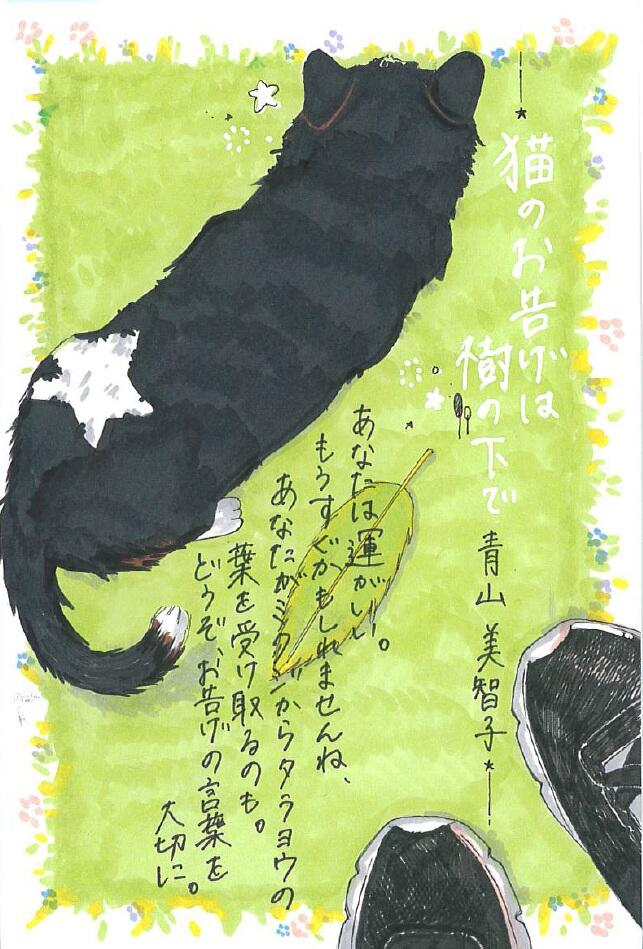 猫のお告げは
樹の下で
青山美智子
あなたは運がいい。
もうすぐかもしれませんね、
あなたがミクジからタラヨウの
葉を受け取るのも。
どうぞ、お告げの言葉を
大切に。